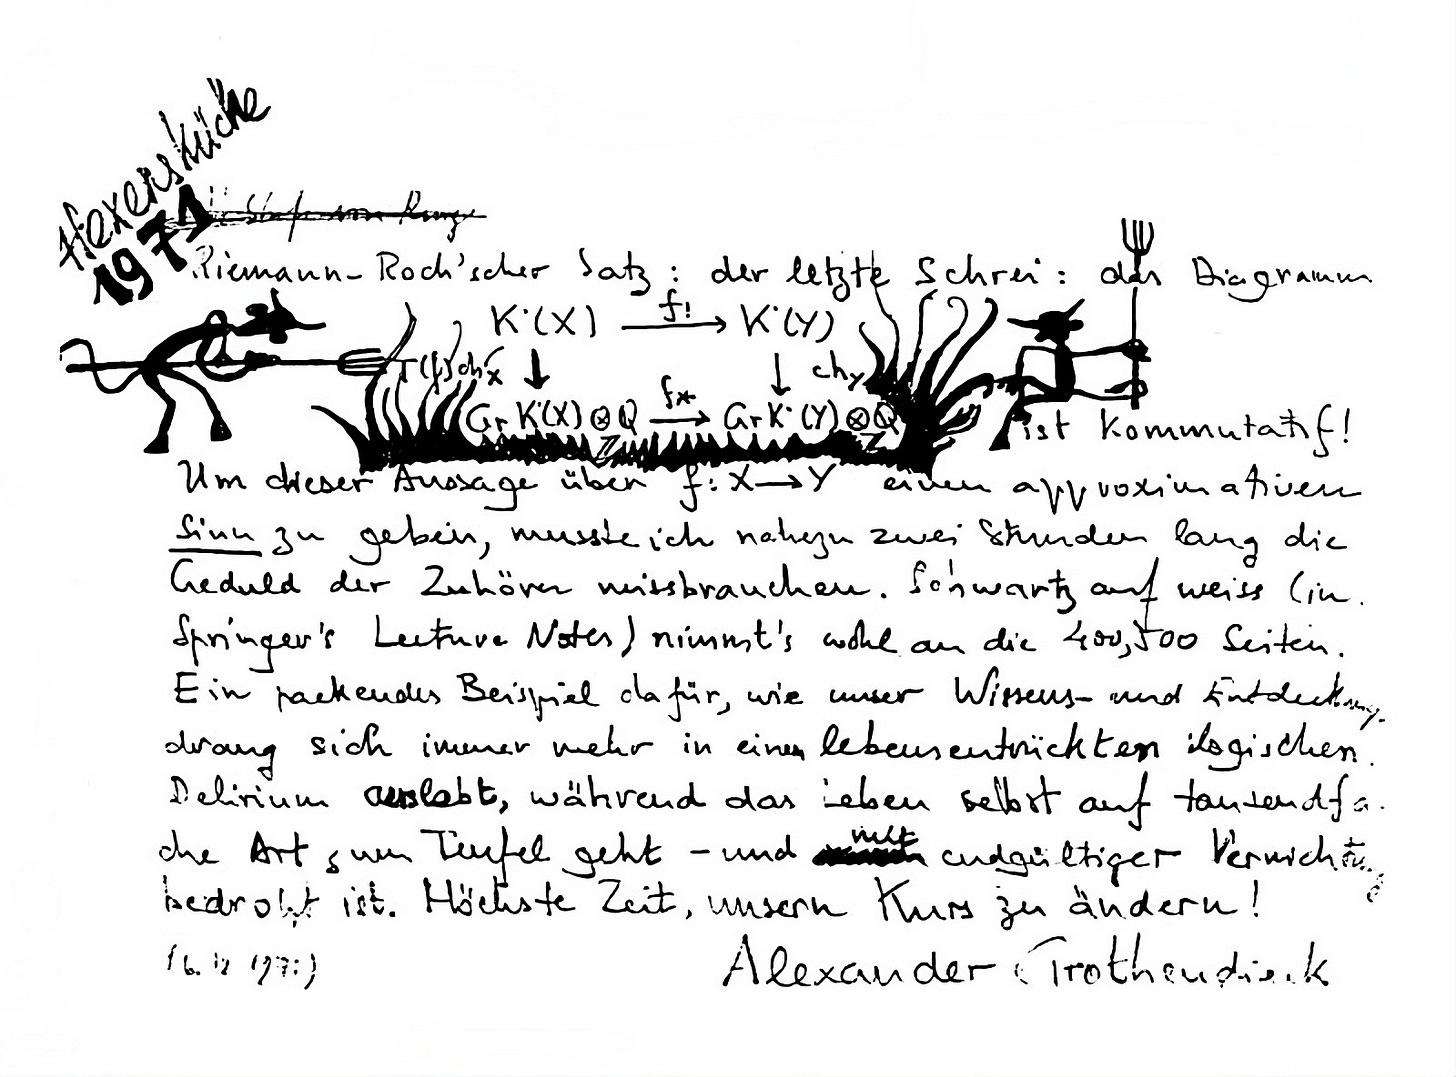 Hexenküche
1971
Riemann-Roch'scher Satz: der letzte Schrei: das Diagramm
K˙(X) f! → K˙(Y)
T(f)chX ↓ ↓ chY
Gr K˙(X)⊗Q f* → Gr K˙(Y)⊗Q
Z Z
ist kommutatif!
Um dieser Aussage über f: X → Y einen approximativen
Sinn zu geben, musste ich nahezu zwei Stunden lang die
Geduld der Zuhörer missbrauchen. Schwartz auf weiss (in
Springer's Lecture Notes) nimmt's wohl an die 400, 500 Seiten.
Ein packendes Beispiel dafür, wie unser Wissens- und Entdeckungs-
drang sich immer mehr in einem lebensentrückten logischen
Delirium auslebt, während das Leben selbst auf tausendfa-
che Art zum Teufel geht - und mit endgültiger Vernichtung
bedroht ist. Höchste Zeit, unsern Kurs zu ändern!
Alexander Grothendieck